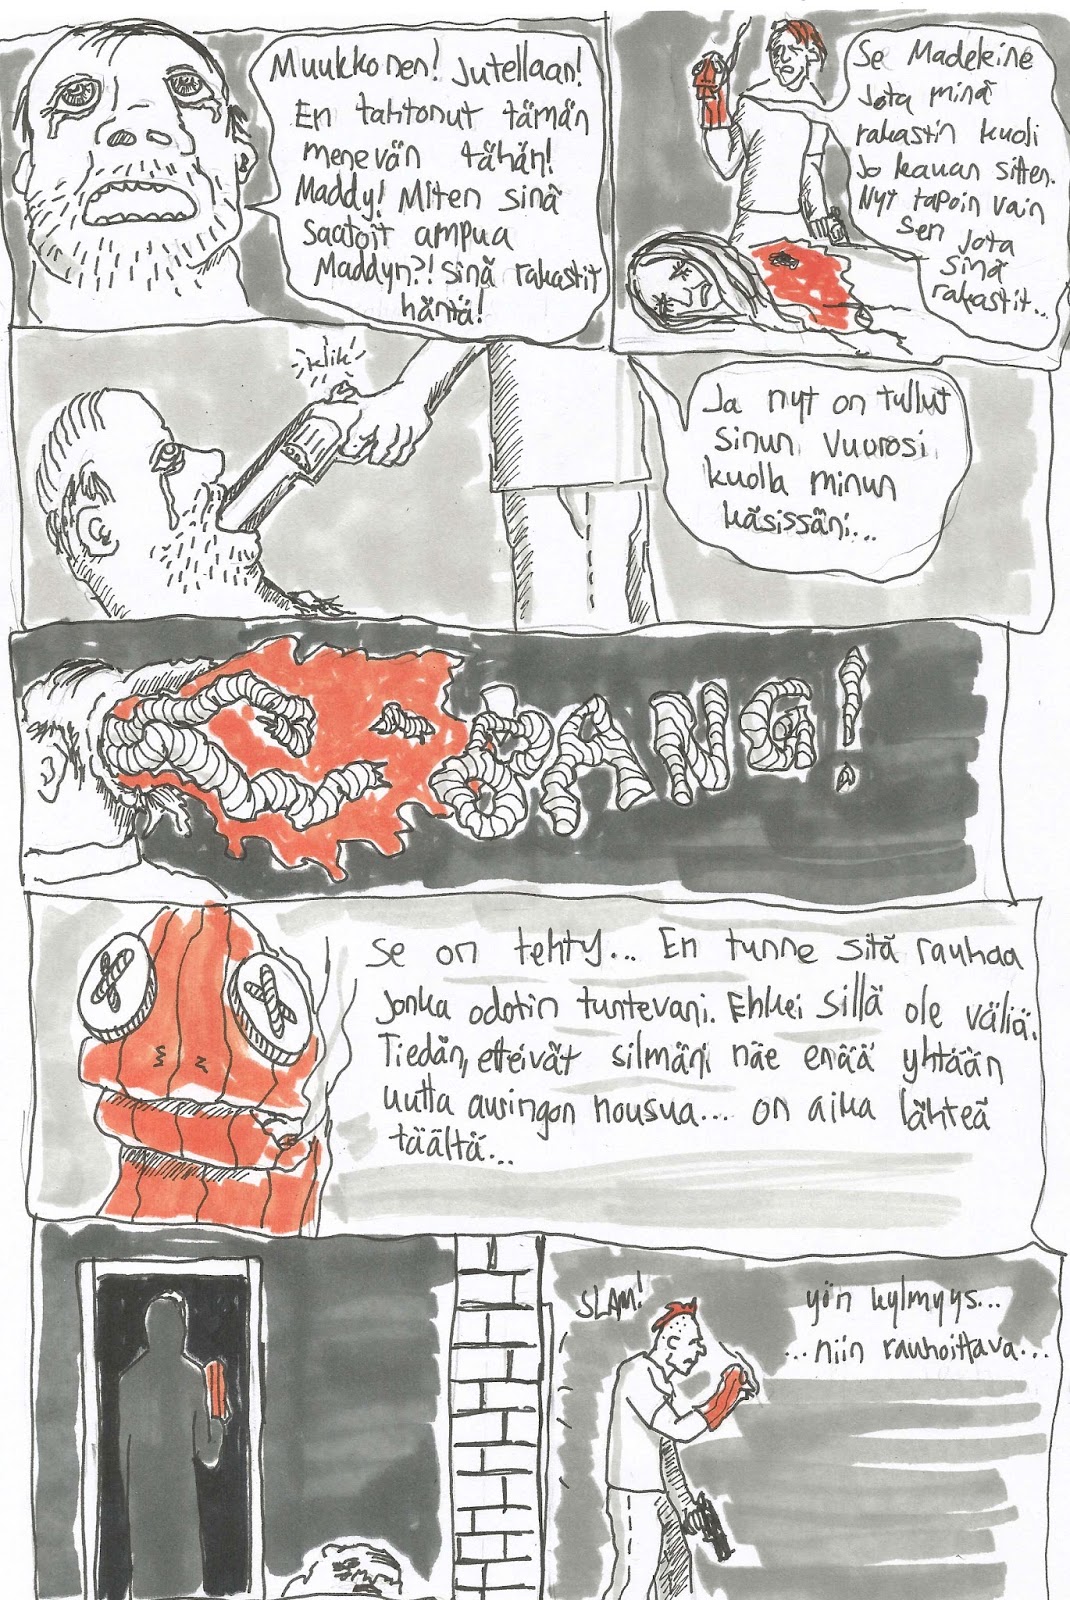 Muukkonen! Jutellaan!
En tahtonut tämän
menevän tähän!
Maddy! Miten sinä
saatoit ampua
Maddyn?! Sinä rakastit
häntä!
Se Madeleine
jota minä
rakastin kuoli
jo kauan sitten.
Nyt tapoin vain
sen jota
sinä
rakastit...
klik
Ja nyt on tullut
sinun vuorosi
kuolla minun
käsissäni...
BANG!
Se on tehty... En tunne sitä rauhaa
jonka odotin tuntevani. Ehkei sillä ole väliä.
Tiedän, etteivät silmäni näe enää yhtään
uutta auringon nousua... on aika lähteä
täältä...
SLAM!
yön kylmyys...
...niin rauhoittava...